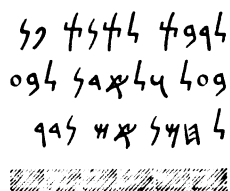 𐤋𐤓𐤁𐤕 𐤋𐤕𐤍𐤕 𐤐𐤍
𐤁𐤏𐤋 𐤅𐤋𐤀𐤃𐤍 𐤋𐤁𐤏
𐤋 𐤇𐤌𐤍 𐤀𐤔 𐤍𐤃𐤓